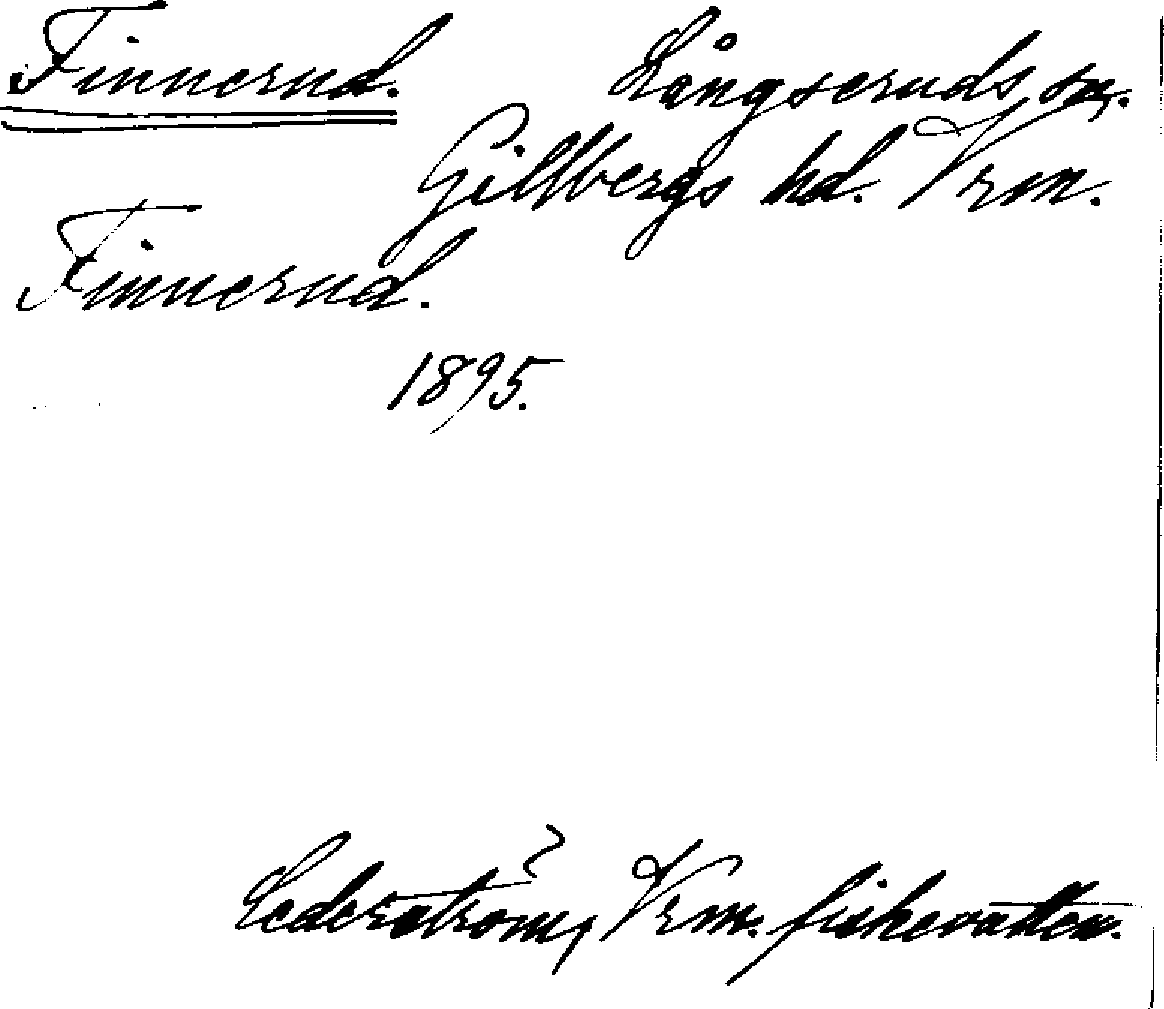 Finnerud. Långseruds sn.
Gillbergs hd. Vrm.
Finnerud.
1895.
Cederström, Vrm. fiskevatten.